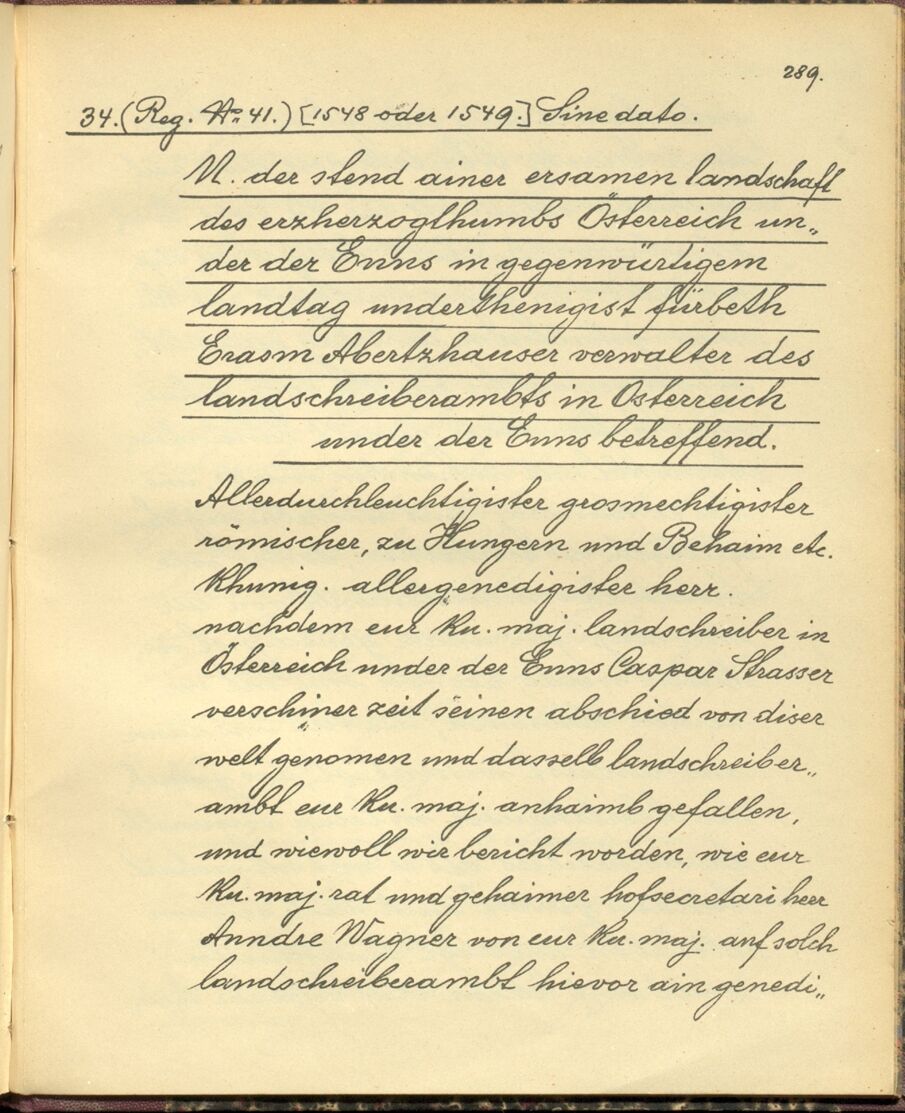 289.
34. (Reg. No. 41.) [1548 oder 1549.] Sine dato.
N. der stend ainer ersamen landschaft
des erzherzogthumbs Österreich un„
der der Enns in gegenwürtigem
landtag underthenigist fürbeth
Erasm Abertzhauser verwalter des
landschreiberambts in Osterreich
under der Enns betreffend.
Allerdurchleuchtigister grosmechtigister
römischer, zu Hungern und Behaim etc.
Khunig. allergenedigister herr.
nachdem eur ku. maj. landschreiber in
Österreich under der Enns Caspar Strasser
verschiner zeit seinen abschied von diser
welt genomen und dasselb landschreiber„
ambt eur ku. maj. anhaimb gefallen,
und wiewoll wir bericht worden, wie eur
ku. maj. rat und gehaimer hofsecretari herr
Anndre Wagner von eur ku. maj. auf solch
landschreiberambt hievor ain genedi„